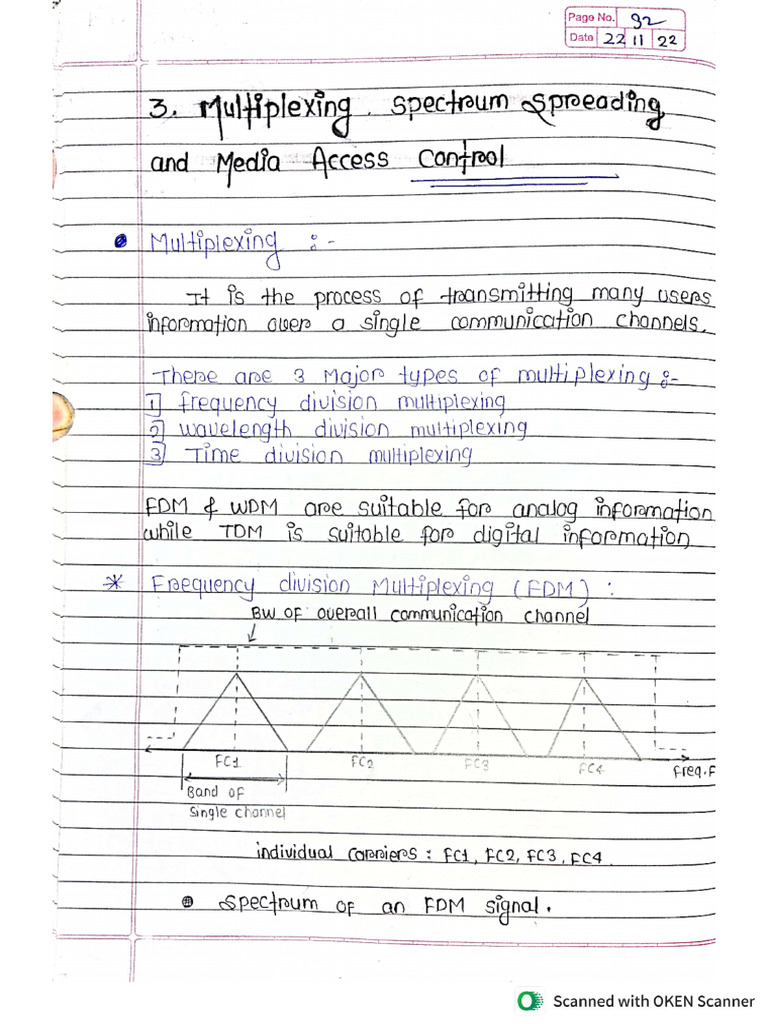 Page No. 92
Date 22 11 22
3. Multiplexing. Spectrum Spreading
and Media Access Control
Multiplexing :-
It is the process of transmitting many users
information over a single communication channels.
There are 3 Major types of multiplexing :-
1] frequency division multiplexing
2] wavelength division multiplexing
3] Time division multiplexing
FDM & WDM are suitable for analog information
while TDM is suitable for digital information
* Frequency division Multiplexing (FDM) :
BW OF overall communication channel
FC1 FC2 FC3 FC4 Freq.F
Band of
Single channel
individual carriers : FC1, FC2, FC3, FC4
Spectrum of an FDM signal.
Scanned with OKEN Scanner